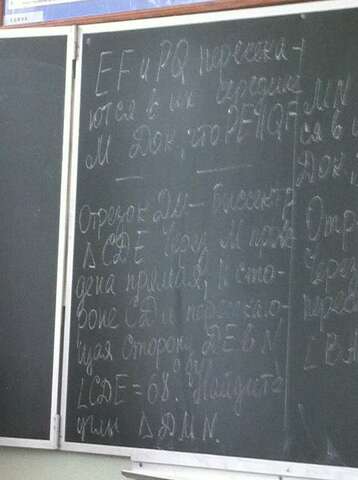 EF и PQ пересека-
ются в их середине
М Док, что PE || QF
Отрезок DM – биссектр
△ CDE Через М прове
дена прямая, || сто-
роне CD и пересекаю-
щая сторону DE в N
∠CDE = 68°. Найдите
углы △ DMN.
MN
ся в
Док,
Отр
Через
перес
∠